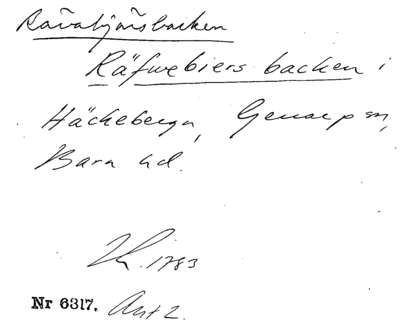 Rävabjärsbacken
Räfwebiers backen i
Häckeberga, Genarp sn,
Bara hd.
1783
Nr 6317. Akt 2.